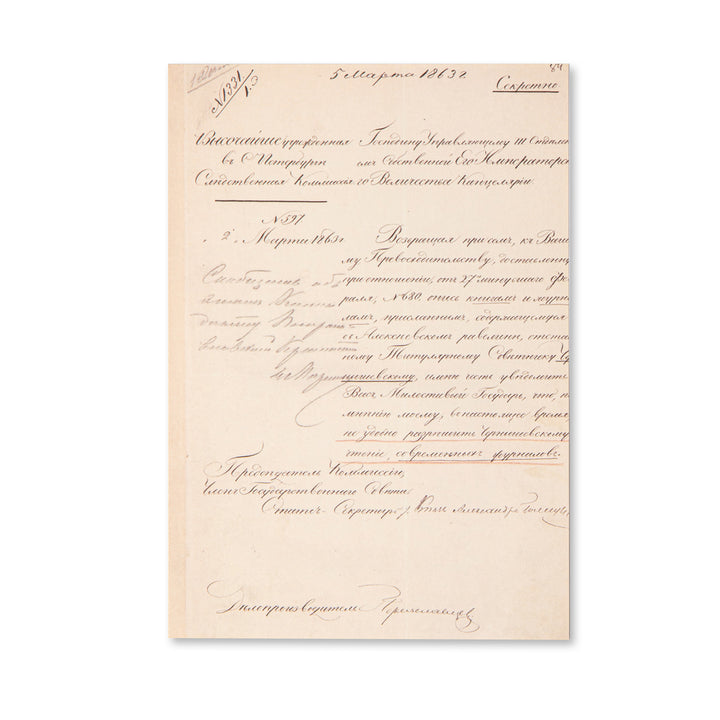 5 Марта 1863 г.
84
Секретно
№ 1331
1.3
Высочайше учрежденная
въ С. Петербургѣ
Слѣдственная Коммиссія
Господину Управляющему III Отдѣле
емъ Собственной Его Император
го Величества Канцеляріи.
№ 597
„ 2 „ Марта 1863 г.
Возвращая при семъ, къ Ваше
му Превосходительству, доставленну
при отношеніи, отъ 27 минувшаго Фе
раля, № 680. опись книгамъ и журна
ламъ, присланнымъ, содержащемуся
въ Алексѣевскомъ равелинѣ, отстав
ному Титулярному Совѣтнику Че
нышевскому, имѣю честь увѣдомить
Васъ Милостивый Государь, что, по
мнѣнію моему, въ настоящее время,
не удобно разрѣшить Чернышевскому
чтеніе, современныхъ журналовъ.
Сообщить объ
Коменданту Петропав
ловской Крѣпости
Предсѣдатель Коммиссіи,
Членъ Государственнаго Совѣта
Статсъ-Секретарь, Князь Александръ Голицы
Дѣлопроизводитель